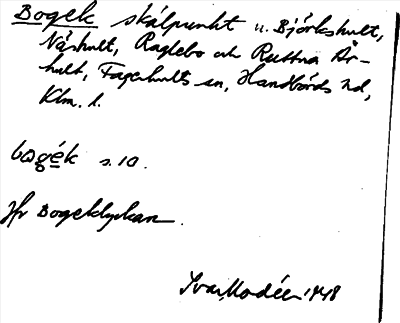 Bogek skälpunkt u. Björkshult,
Näshult, Raglebo och Ruttna År-
hult, Fagerhults sn, Handbörds hd,
Klm. l.
bo̱gék s. 10.
Hr Bogeklyckan
Ivar Modéer 1948